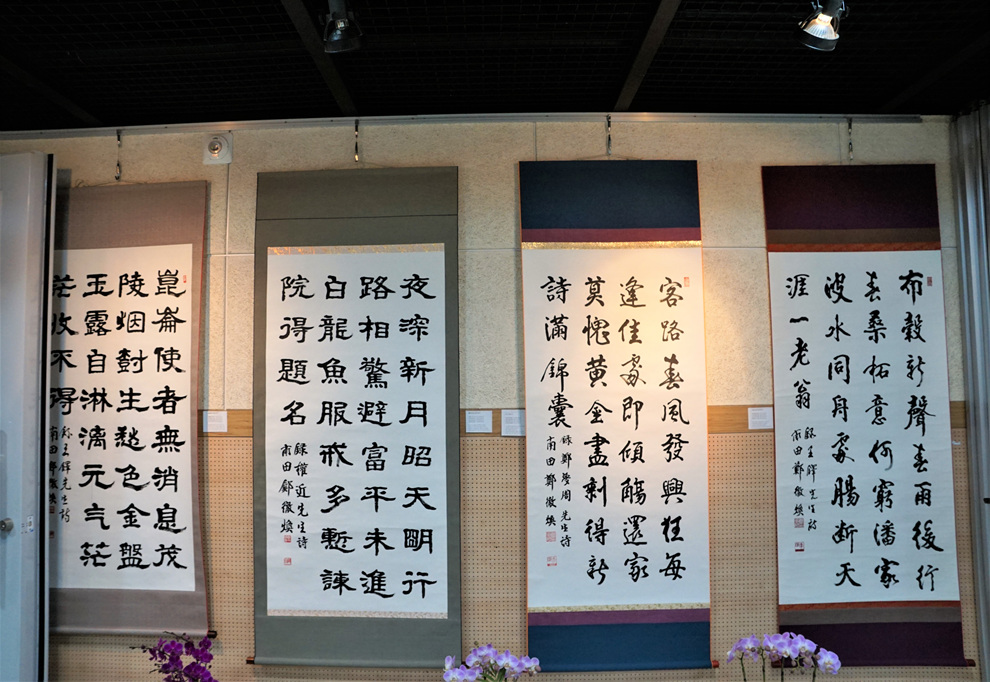 布穀新聲春雨後行
春桑柘意何窮潘家
波水同舟處腸断天
涯一老翁
錄王鐸先生詩
甫田鄭徽煥
客路春風發興狂每
逢佳處即傾觴還家
莫愧黃金盡剩得新
詩滿錦囊
錄鄭夢周先生詩
甫田鄭徽煥
夜深新月昭天明行
路相驚避富平未進
白龍魚服戒多慙諫
院得題名
錄權近先生詩
甫田鄭徽煥
崑崙使者無消息茂
陵烟尌生愁色金盤
玉露自淋漓元气茫
茫收不得
錄王鐸先生詩
甫田鄭徽煥